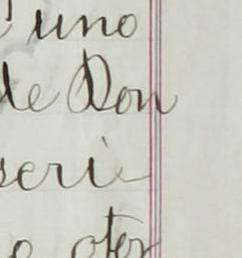 uno
de Don
serie
e otor